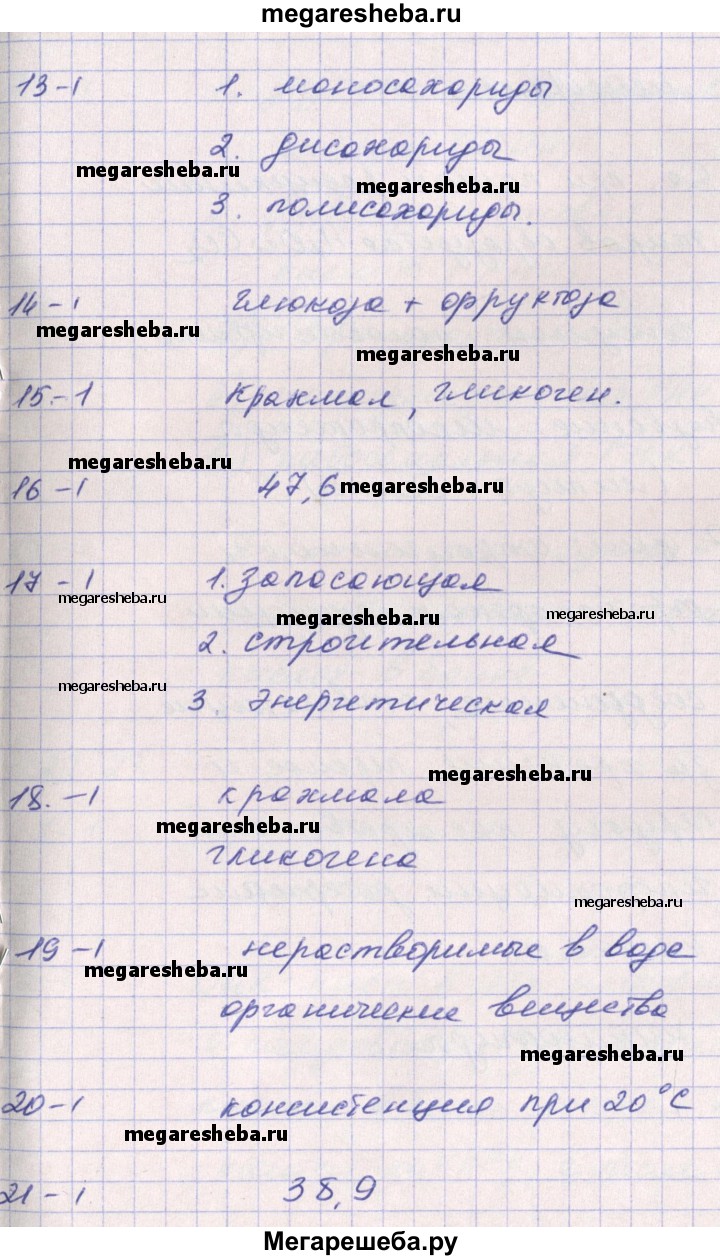 megaresheba.ru
13-1 1. моносахориды
2. дисахориды
megaresheba.ru
megaresheba.ru
3. полисахориды.
14-1 глюкоза + фруктоза
megaresheba.ru
megaresheba.ru
15.-1 Крахмал, гликоген.
megaresheba.ru
16-1 47,6 megaresheba.ru
17-1 1. Запасающая
megaresheba.ru
megaresheba.ru
megaresheba.ru
2. строительная
megaresheba.ru
3. Энергетическая
megaresheba.ru
18.-1 крахмала
megaresheba.ru
гликогена
megaresheba.ru
19-1 нерастворимые в воде
megaresheba.ru
органические вещества
megaresheba.ru
20-1 консистенция при 20°С
megaresheba.ru
21-1 38,9
Мегарешеба.ру